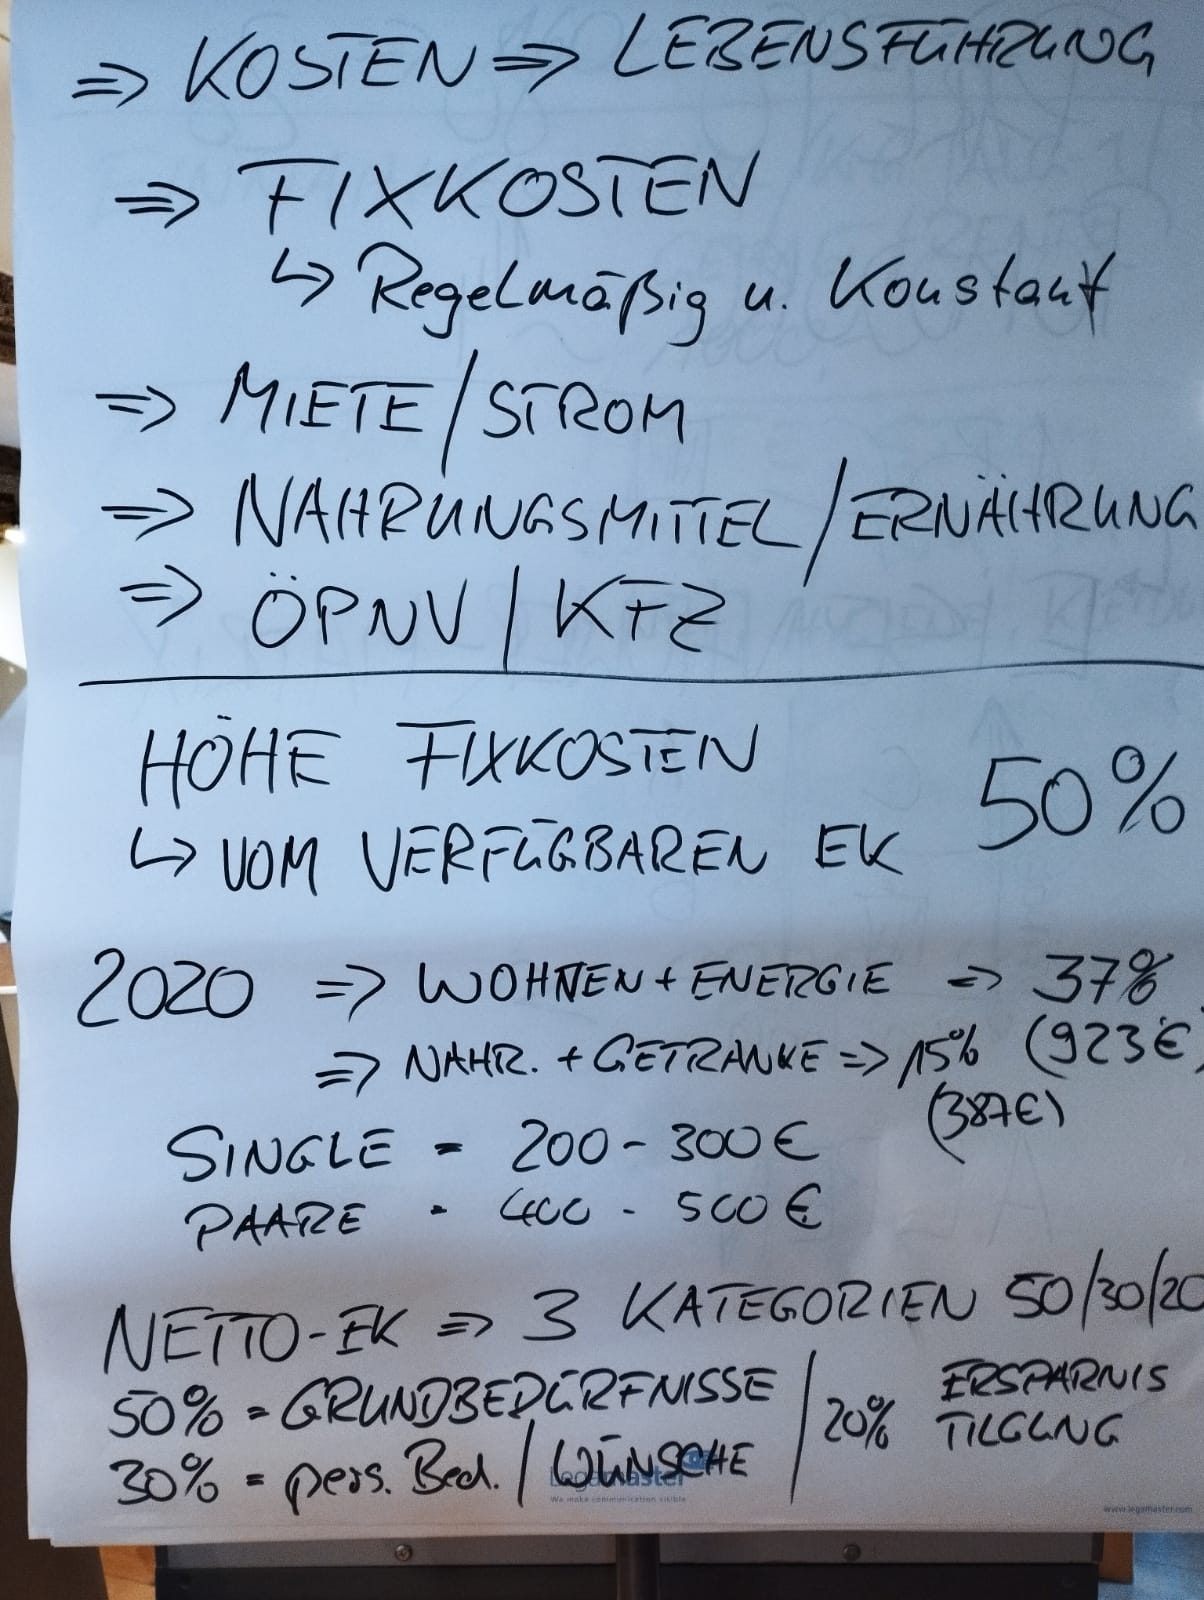 ⇒ KOSTEN ⇒ LEBENSFÜHRUNG
⇒ FIXKOSTEN
↳ Regelmäßig u. Konstant
⇒ MIETE / STROM
⇒ NAHRUNGSMITTEL / ERNÄHRUNG
⇒ ÖPNV / KFZ
HÖHE FIXKOSTEN 50%
↳ VOM VERFÜGBAREN EK
2020 ⇒ WOHNEN + ENERGIE ⇒ 37%
⇒ NAHR. + GETRÄNKE ⇒ 15% (923€)
(387€)
SINGLE = 200 - 300 €
PAARE = 400 - 500 €
NETTO-EK ⇒ 3 KATEGORIEN 50/30/20
50% = GRUNDBEDÜRFNISSE / 20% ERSPARNIS
TILGUNG
30% = pers. Bed. / WÜNSCHE
Legamaster
We make communication visible
www.legamaster.com